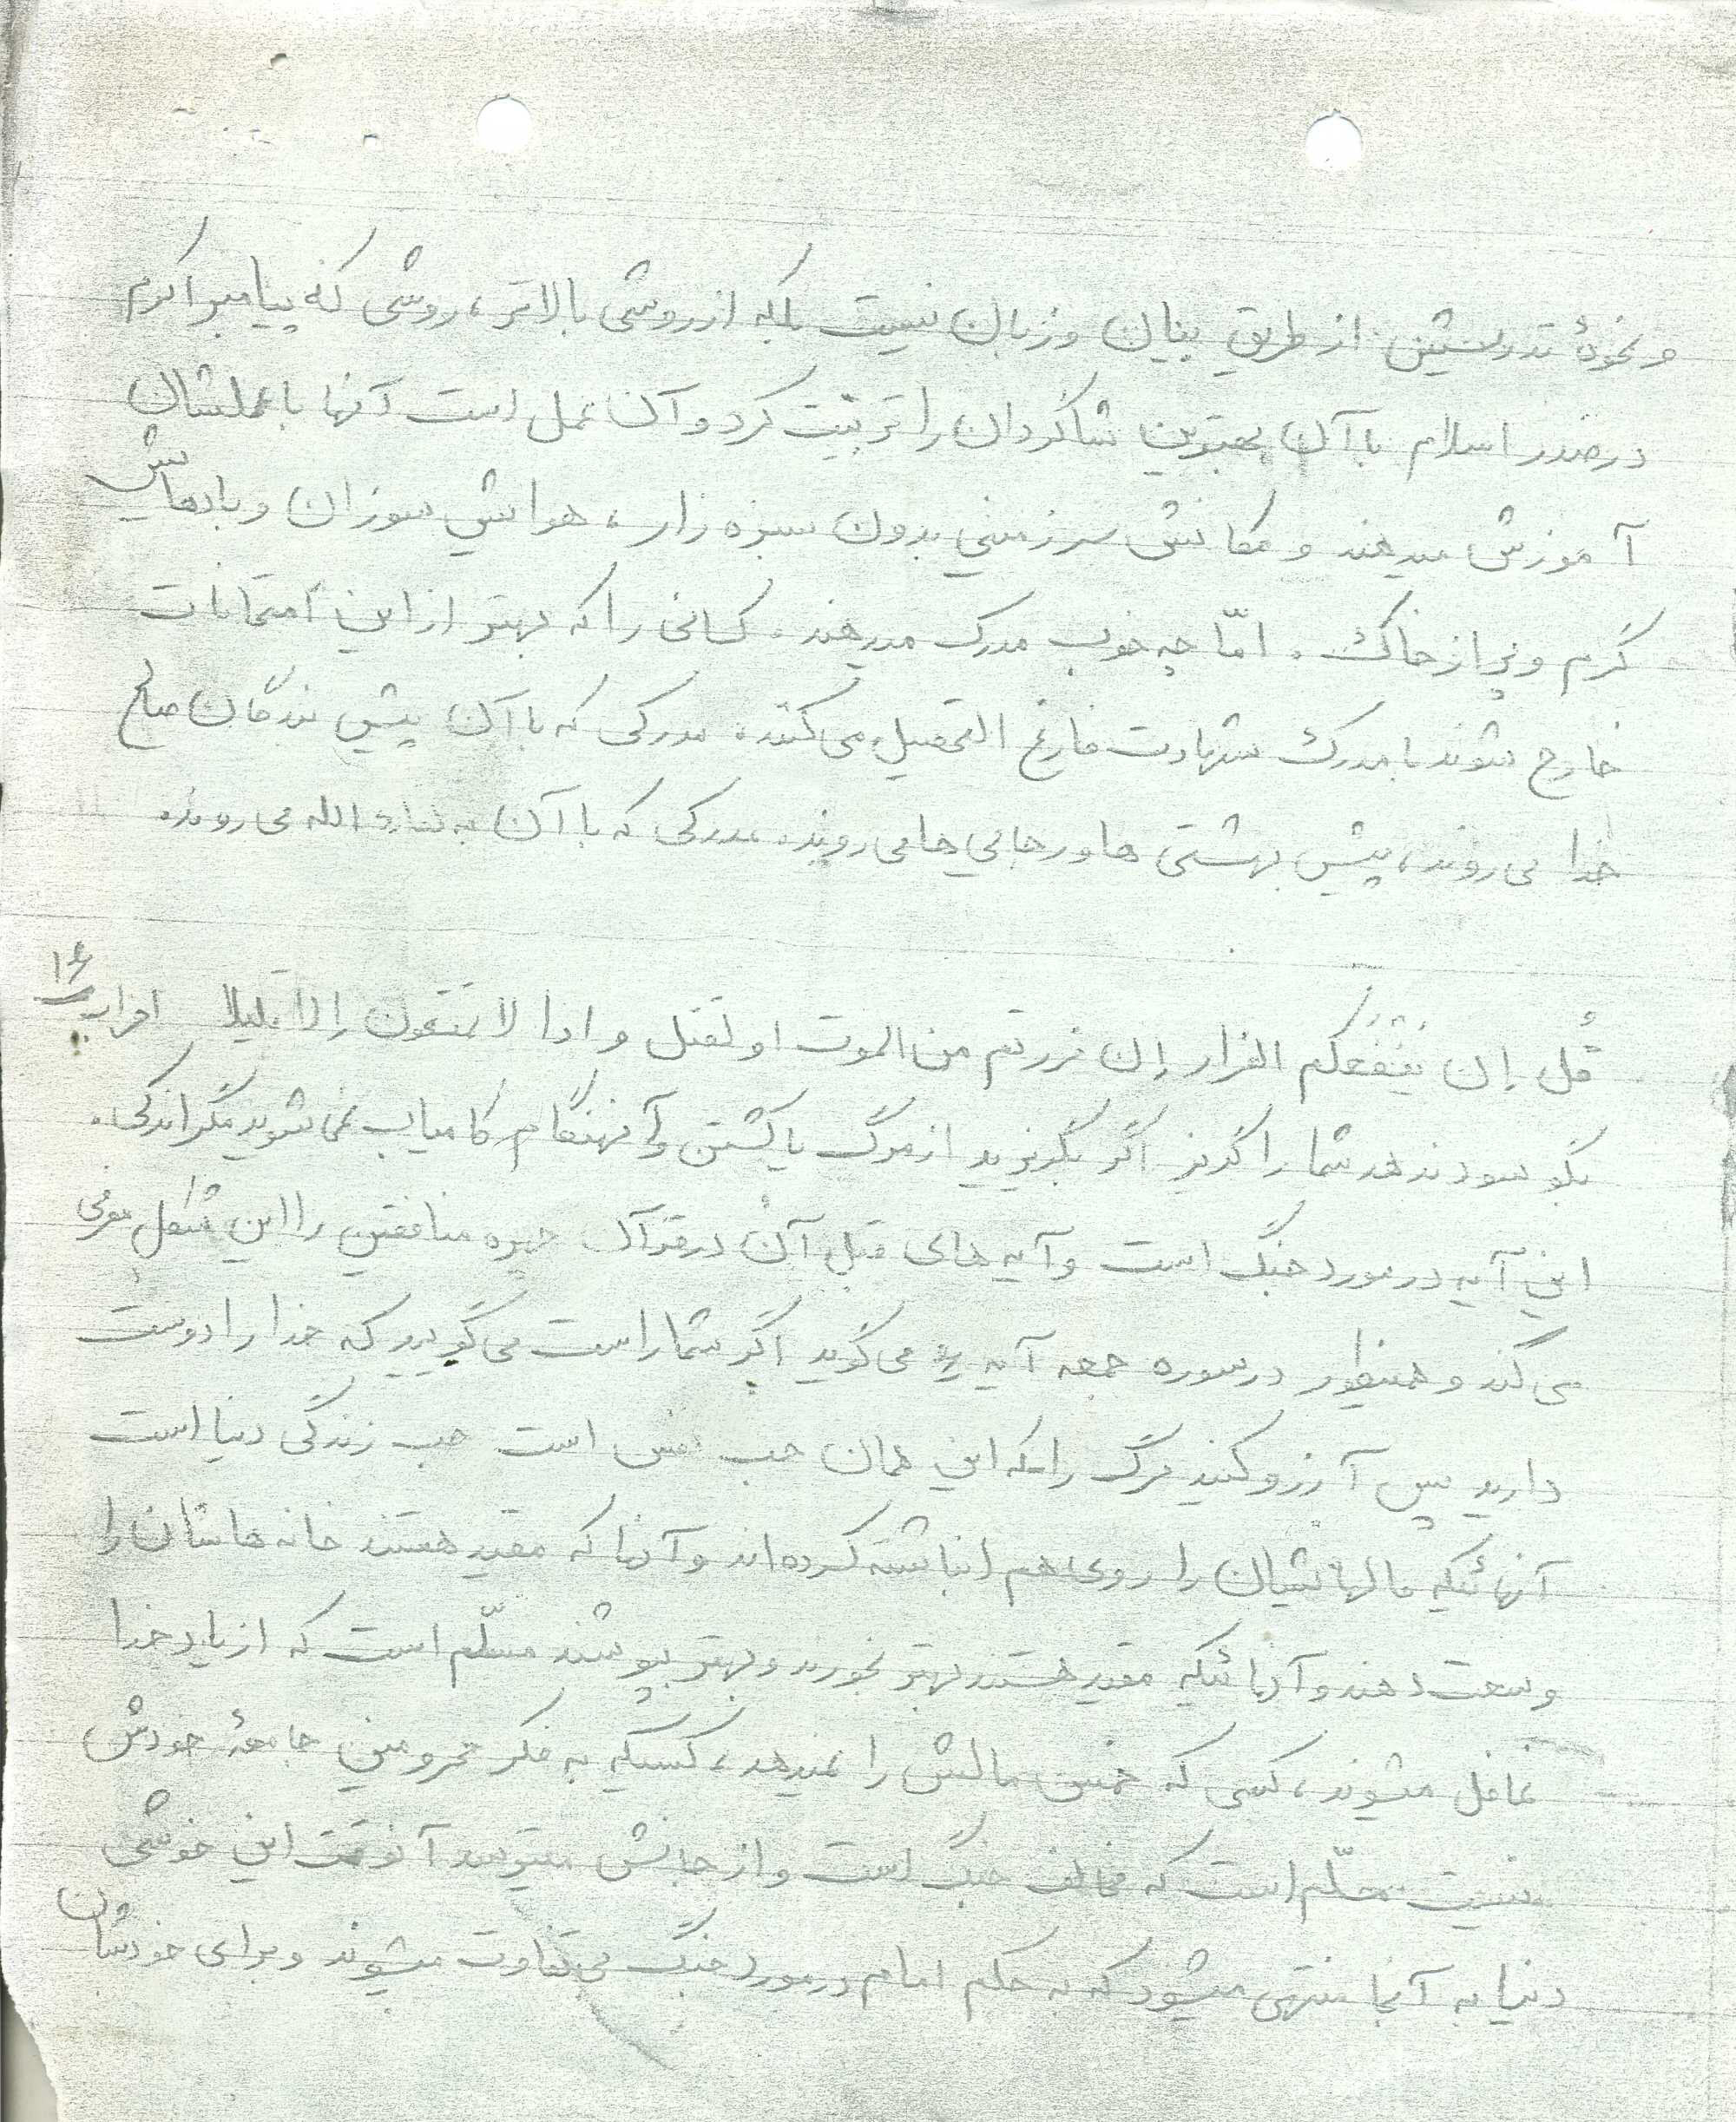 و نحوهٔ تدریسشین از طریق بنیان و زبان نیست بلکه از روشی بالاتر، روشی که پیامبر اکرم
در صدر اسلام با آن بهترین شاگردان را تربیت کرد و آن عمل است آنها با عملشان
آموزش میدهند و مکانش سرزمینی بدون سبزه زار، هوایش سوزان و بادهایش
گرم و پر از خاک. امّا چه خوب مدرک میدهند. کسانی را که بهتر از این امتحانات
خارج شوند با مدرک شهادت فارغ التحصیل می کنند. مدرکی که با آن پیش بندگان صالح
خدا می روند، پیش بهشتی ها و رجایی ها می روند. مدرکی که با آن به لقاء الله می روند.
قُل إن یَنْفَعَکُم الفرار إن فررتم من الموت او لقتل و اذا لا تمتعون إلا قلیلا احزاب ۱۶
بگو سود ندهد شما را گریز اگر بگریزید از مرگ یا کشتن و آنهنگام کامیاب نمی شوید مگر اندکی.
این آیه در مورد جنگ است و آیه های قبل آن در قرآن چهره منافقین را این شکل معرفی
می کند و همینطور در سوره جمعه آیه ۶ می گوید اگر شما راست می گویید که خدا را دوست
دارید پس آرزو کنید مرگ را که این همان حب نفس است حب زندگی دنیا است
آنهائیکه مالهایشان را روی هم انباشته کرده اند و آنها که مقید هستند خانه هاشان را
وسعت دهند و آنهائیکه مقید هستند بهتر بخورند و بهتر بپوشند مسلّم است که از یاد خدا
غافل میشوند، کسی که خمس مالش را نمیدهد، کسیکه به فکر محرومین جامعهٔ خودش
نیست مسلّم است که مخالف جنگ است و از جانش میترسد آنوقت این خوشی
دنیا به آنجا منتهی میشود که به حکم امام در مورد جنگ بی تفاوت میشوند و برای خودشان